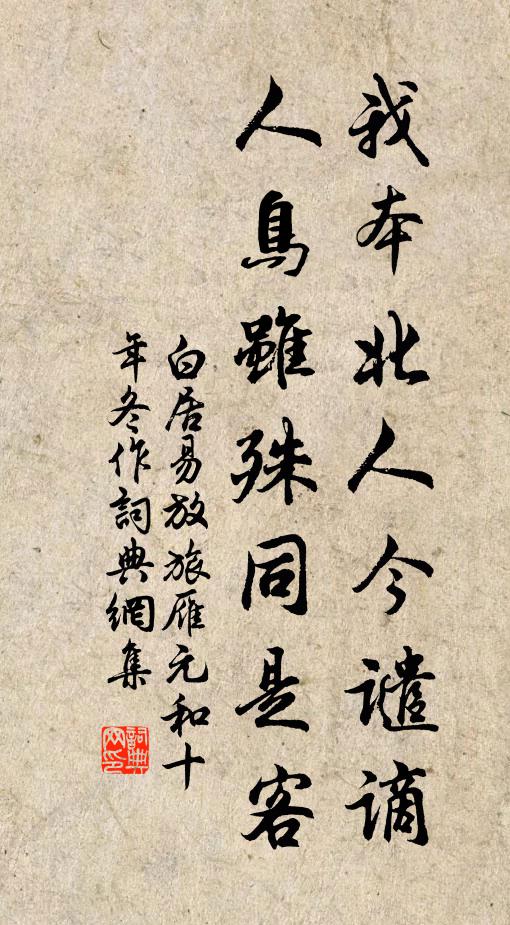 我本北人今譴謫
人鳥雖殊同是客
白居易放旅雁元和十
年冬作詞典網集
詞典
网印